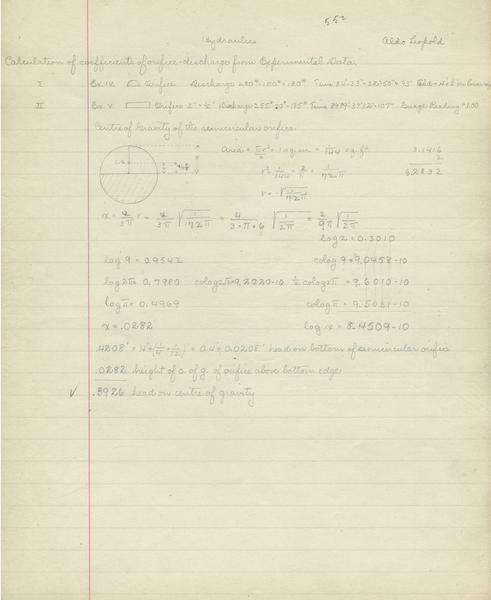 552
Hydraulics Aldo Leopold
Calculation of coefficients of orifice-discharge from Experimental Data.
I Ex. IV. Orifice Discharge
II Ex. V. Orifice Discharge Time Gauge Reading
Centre of Gravity of the semicircular orifice.
Area = πr²/2 = 1 sq. in. = 1/144 sq. ft. 3.1416
2
r² = 1/144 × 2/π = 1/72π 6.2832
r = √1/72π
x = 4/3π r = 4/3π √1/72π = 4/3×π×6 √1/2π = 2/9π √1/2π
log 2 = 0.3010
log 9 = 0.9542 colog 9 = 9.0458-10
log 2π = 0.7980 colog 2π = 9.2020-10 ½ colog 2π = 9.6010-10
log π = 0.4969 colog π = 9.5031-10
x = .0282 log x = 8.4509-10
.4208' = .4' + = 0.4' + 0.0208' head on bottom of semicircular orifice
.0282 height of c. of g. of orifice above bottom edge
✓ .3926 head on centre of gravity